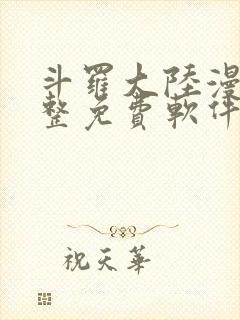 斗羅大陸漫
整免費軟件
祝天華